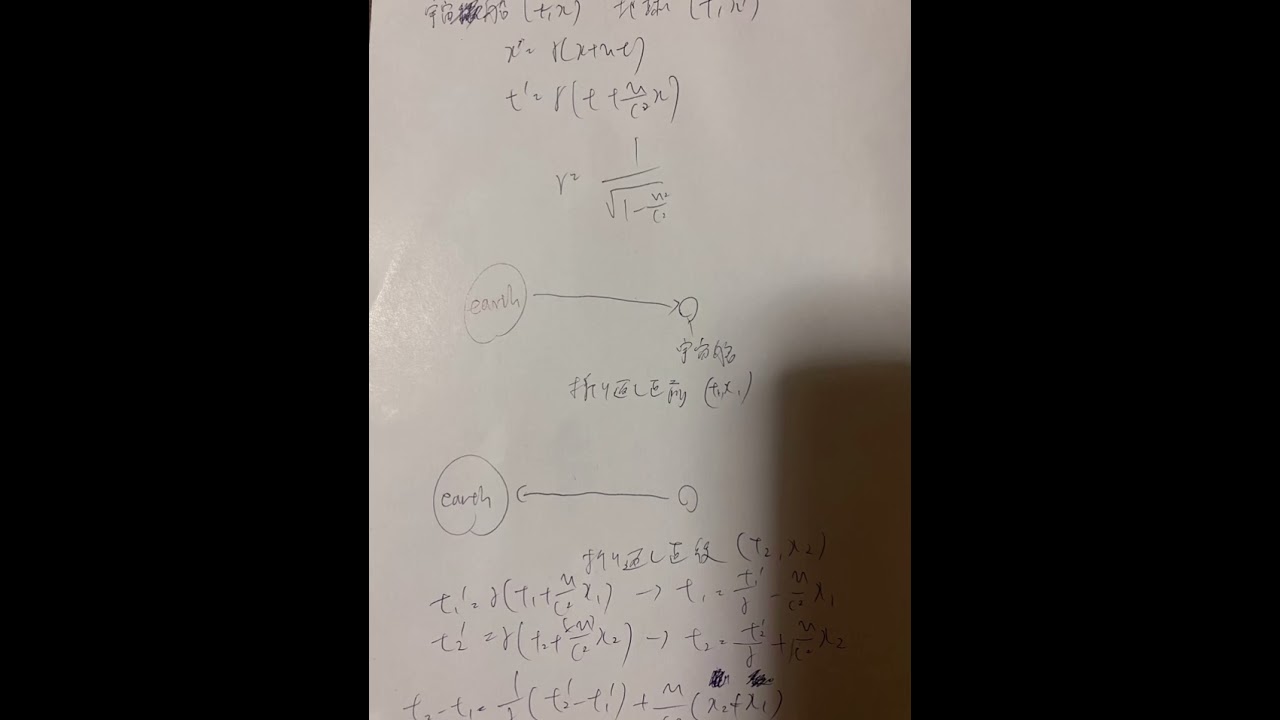 宇宙船 (t,x) 地球 (t',x')
x'=γ(x+ut)
t'=γ(t+u/c² x)
γ= 1/√(1-u²/c²)
earth
宇宙船
折り返し直前 (t₁,x₁)
earth
折り返し直後 (t₂,x₂)
t₁'=γ(t₁+u/c² x₁) → t₁=t₁'/γ - u/c² x₁
t₂'=γ(t₂+(-u)/c² x₂) → t₂=t₂'/γ + u/c² x₂
t₂-t₁=1/γ (t₂'-t₁') + u/c² (x₂+x₁)